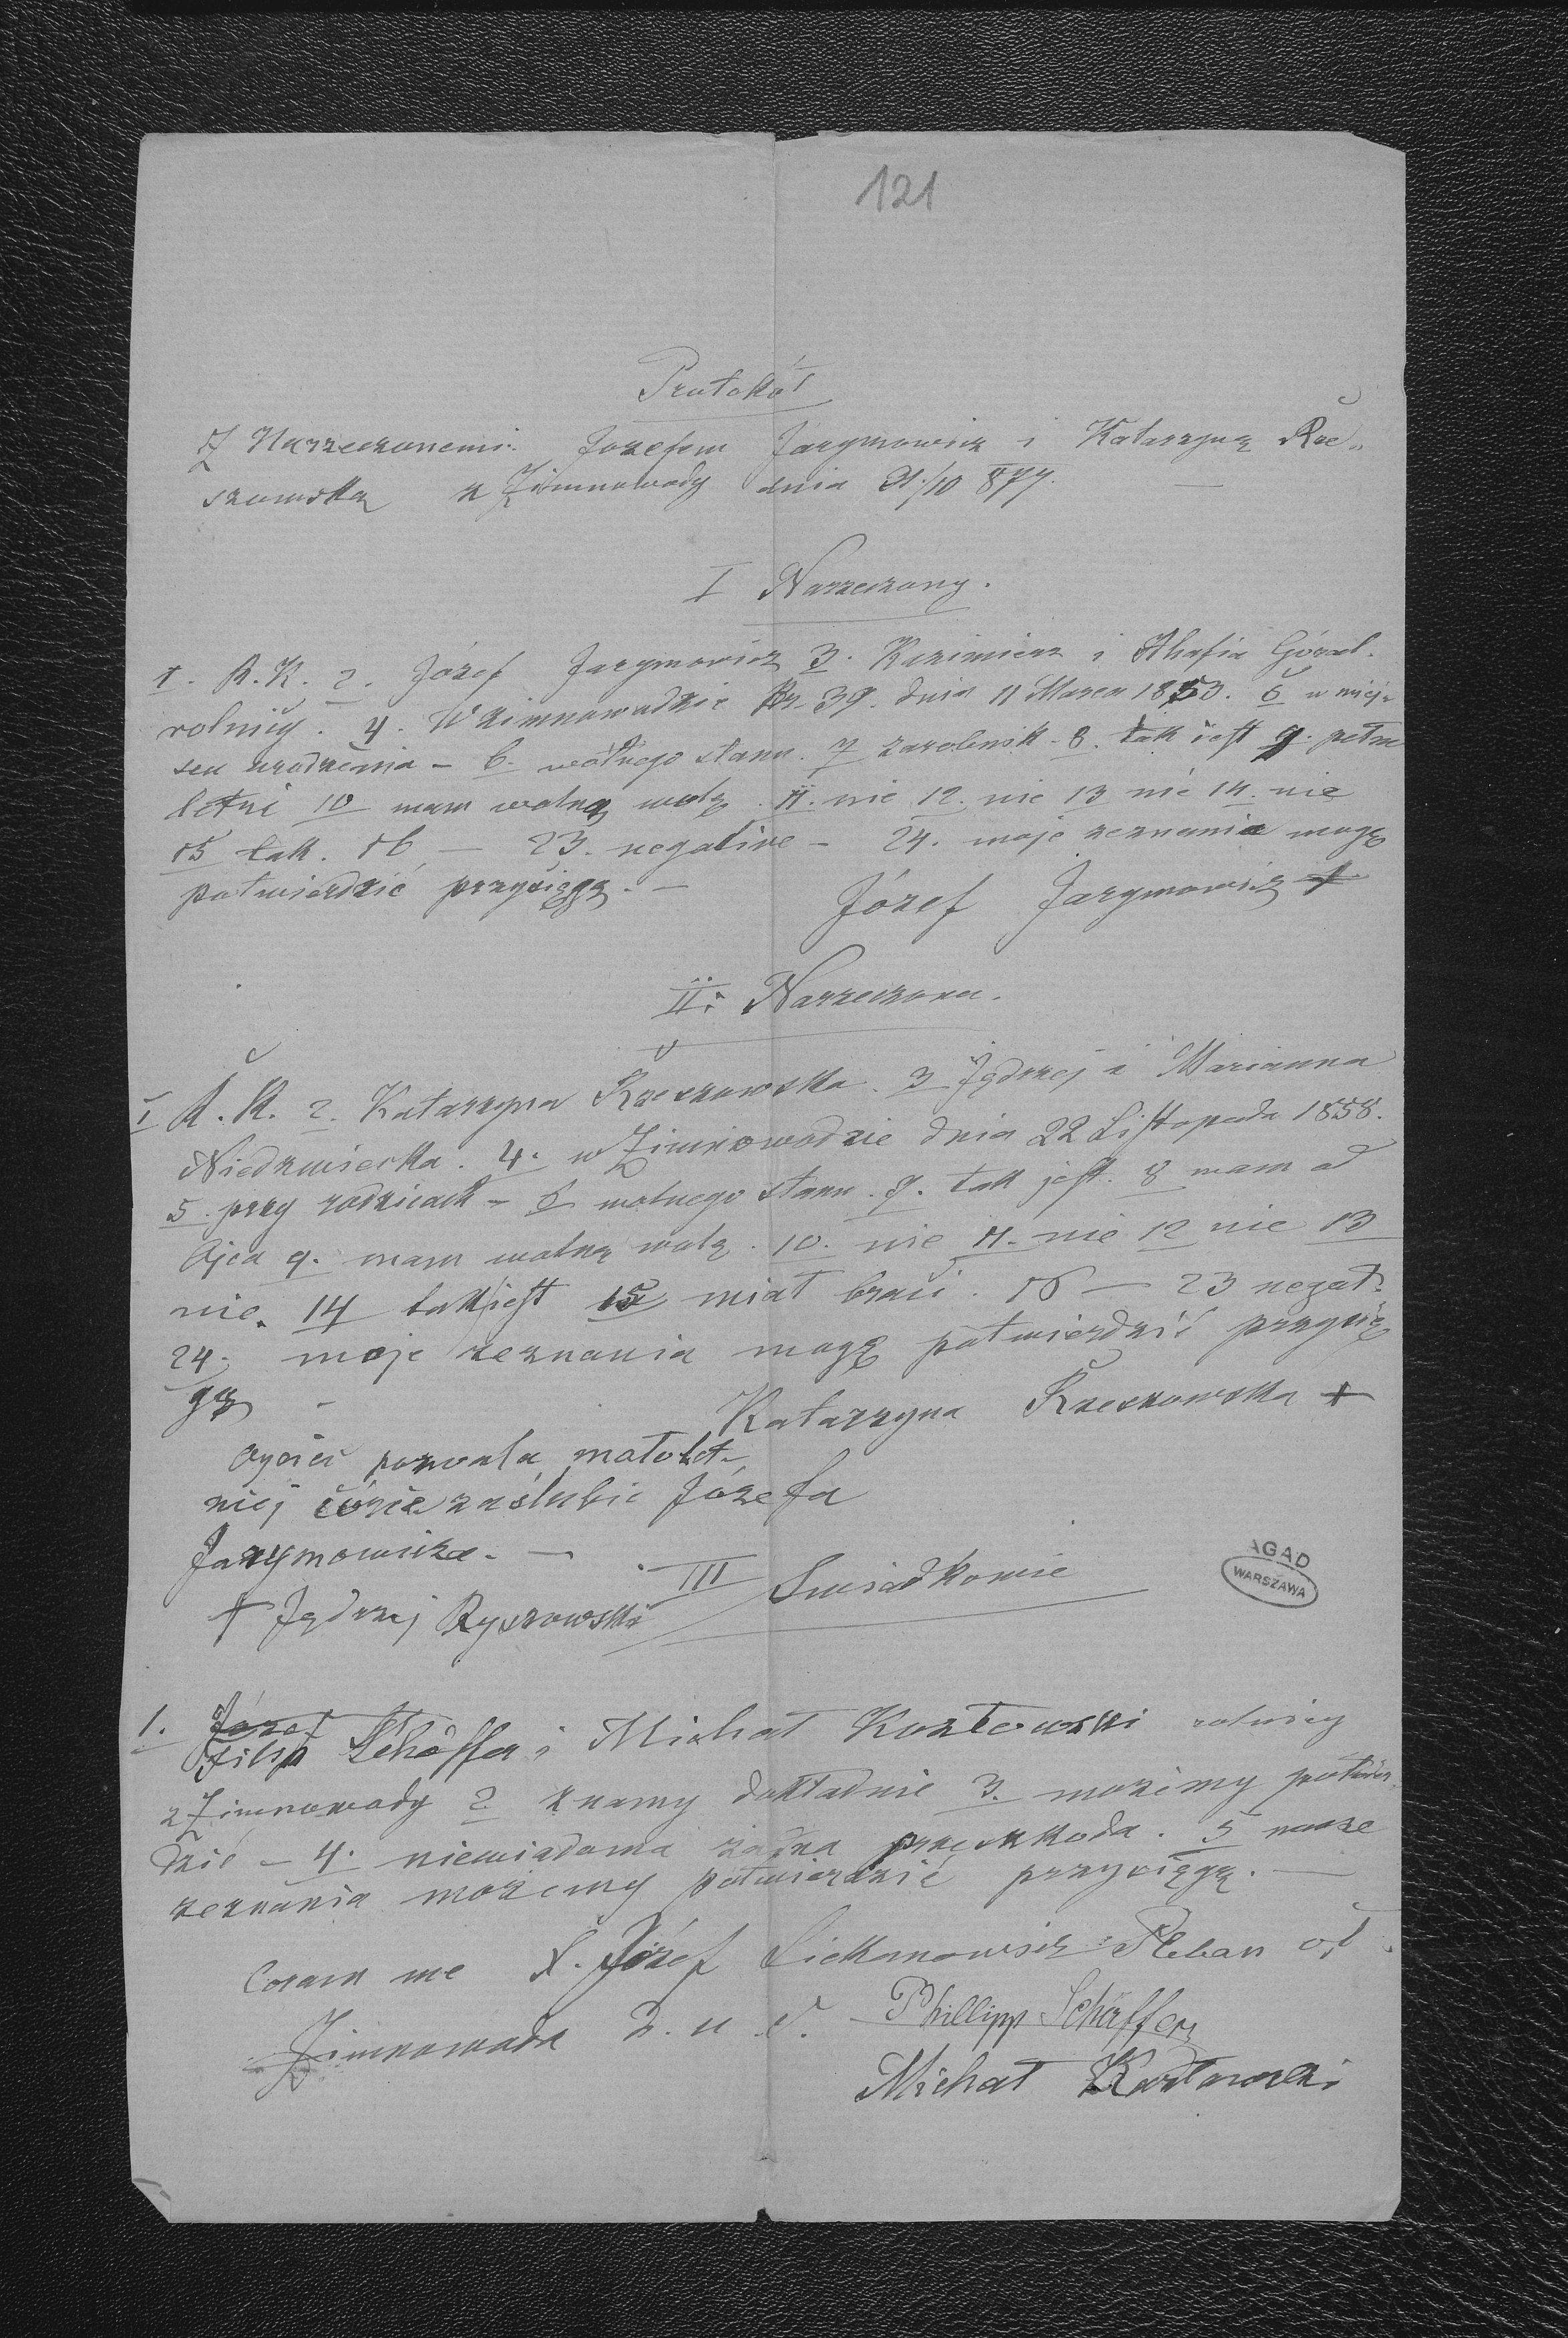 121
Protokół
Z Narzeczonemi: Józefem Jarymowicz i Katarzyną Rze„
szowską z Zimnowody dnia 31/10 877. —
I Narzeczony.
1. R.K. 2. Józef Jarymowicz 3. Kazimierz i Ahafia Góral.
rolnicy. 4. W Zimnowodzie Nr 39. dnia 11 Marca 1853. 5 w miej„
scu urodzenia – 6. wolnego stanu. 7 zarobnik – 8. tak jest 9. pełno
letni 10 mam wolną wolę. 11. nie 12. nie 13 nie 14. nie
15 tak. 16 — 23. negative – 24. moje zeznania mogę
potwierdzić przysięgą. —
Józef Jarymowicz +
II: Narzeczona.
1 R.K. 2. Katarzyna Rzeszowska. 3 Jędrzej i Marianna
Niedzwiecka. 4. w Zimnowodzie dnia 22 Listopada 1858.
5. przy rodzicach – 6 wolnego stanu. 7. tak jest. 8 mam od
Ojca 9. mam wolną wolę. 10. nie 11. nie 12 nie 13
nie. 14 tak jest 15 miał braci. 16 — 23 negat.
24. moje zeznania mogę potwierdzić przysię
gą –
Katarzyna Rzeszowska +
Ojciec pozwala małolet„
niej córce zaślubić Józefa
Jarymowicza. —
+ Jędrzej Ryszowski
III Swiadkowie
AGAD
WARSZAWA
1. Józef
Filip Schäffer i Michał Kozłowski rolnicy
z Zimnowody 2. znamy dokładnie 3. możemy potwier„
dzić – 4. niewiadoma żadna przeszkoda. 5 nasze
zeznania możemy potwierdzić przysięgą. —
Coram me X. Józef Pleban
Zimnowoda D. u. s. Phillipp Schäffer
Michał Kozłowski